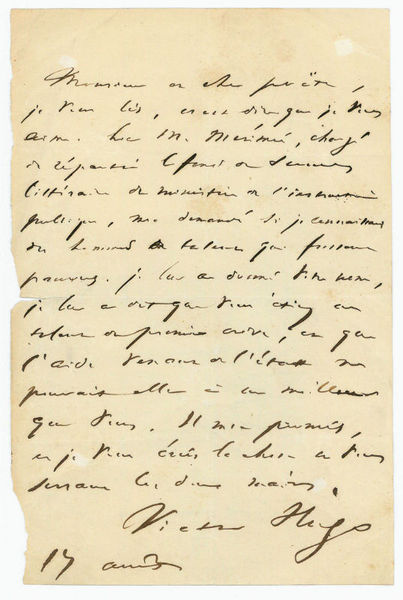 Monsieur et cher poëte,
je vous lis, c'est dire que je vous
aime. hier M. Mérimée, chargé
de répartir le fonds de secours
littéraire du ministère de l'instruction
publique, me demandait si je connaissais
des hommes de talent qui fussent
pauvres. je lui ai donné votre nom,
je lui ai dit que vous étiez un
talent de premier ordre, et que
l'aide de l'état ne
pouvait aller à un meilleur
que vous. Il m'a promis,
et je vous écris la chose en vous
serrant les deux mains.
Victor Hugo
17 août